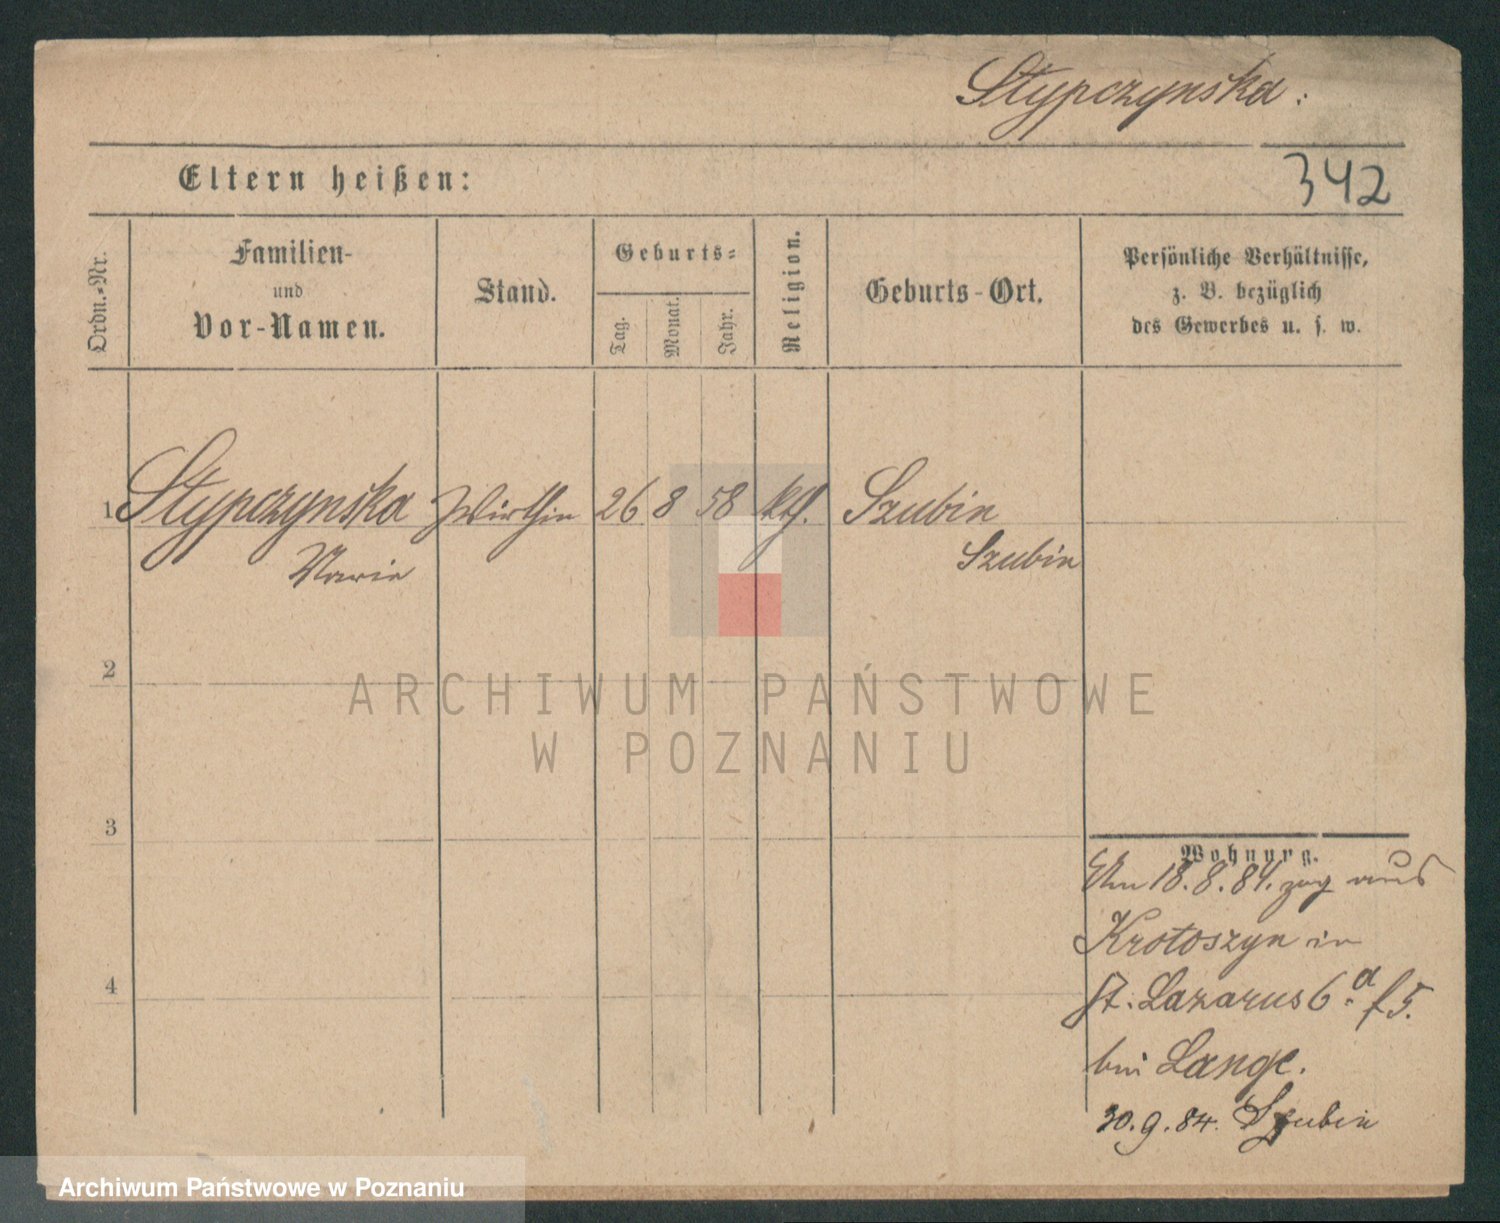 Stypczynska:
342
Eltern heißen:
Ordn.-Nr.
Familien-
und
Vor-Namen.
Stand.
Geburts-
Tag.
Monat.
Jahr.
Religion.
Geburts-Ort.
Persönliche Verhältnisse,
z. B. bezüglich
des Gewerbes u. s. w.
1 Stypczynska Wirthin 26 8 58 kth. Szubin
Marie Szubin
2
ARCHIWUM PAŃSTWOWE
W POZNANIU
3
Wohnung.
Am 18.8.84. zog aus
Krotoszyn in
St. Lazarus 6a
bei Lange.
4
30.9.84. Szubin
Archiwum Państwowe w Poznaniu